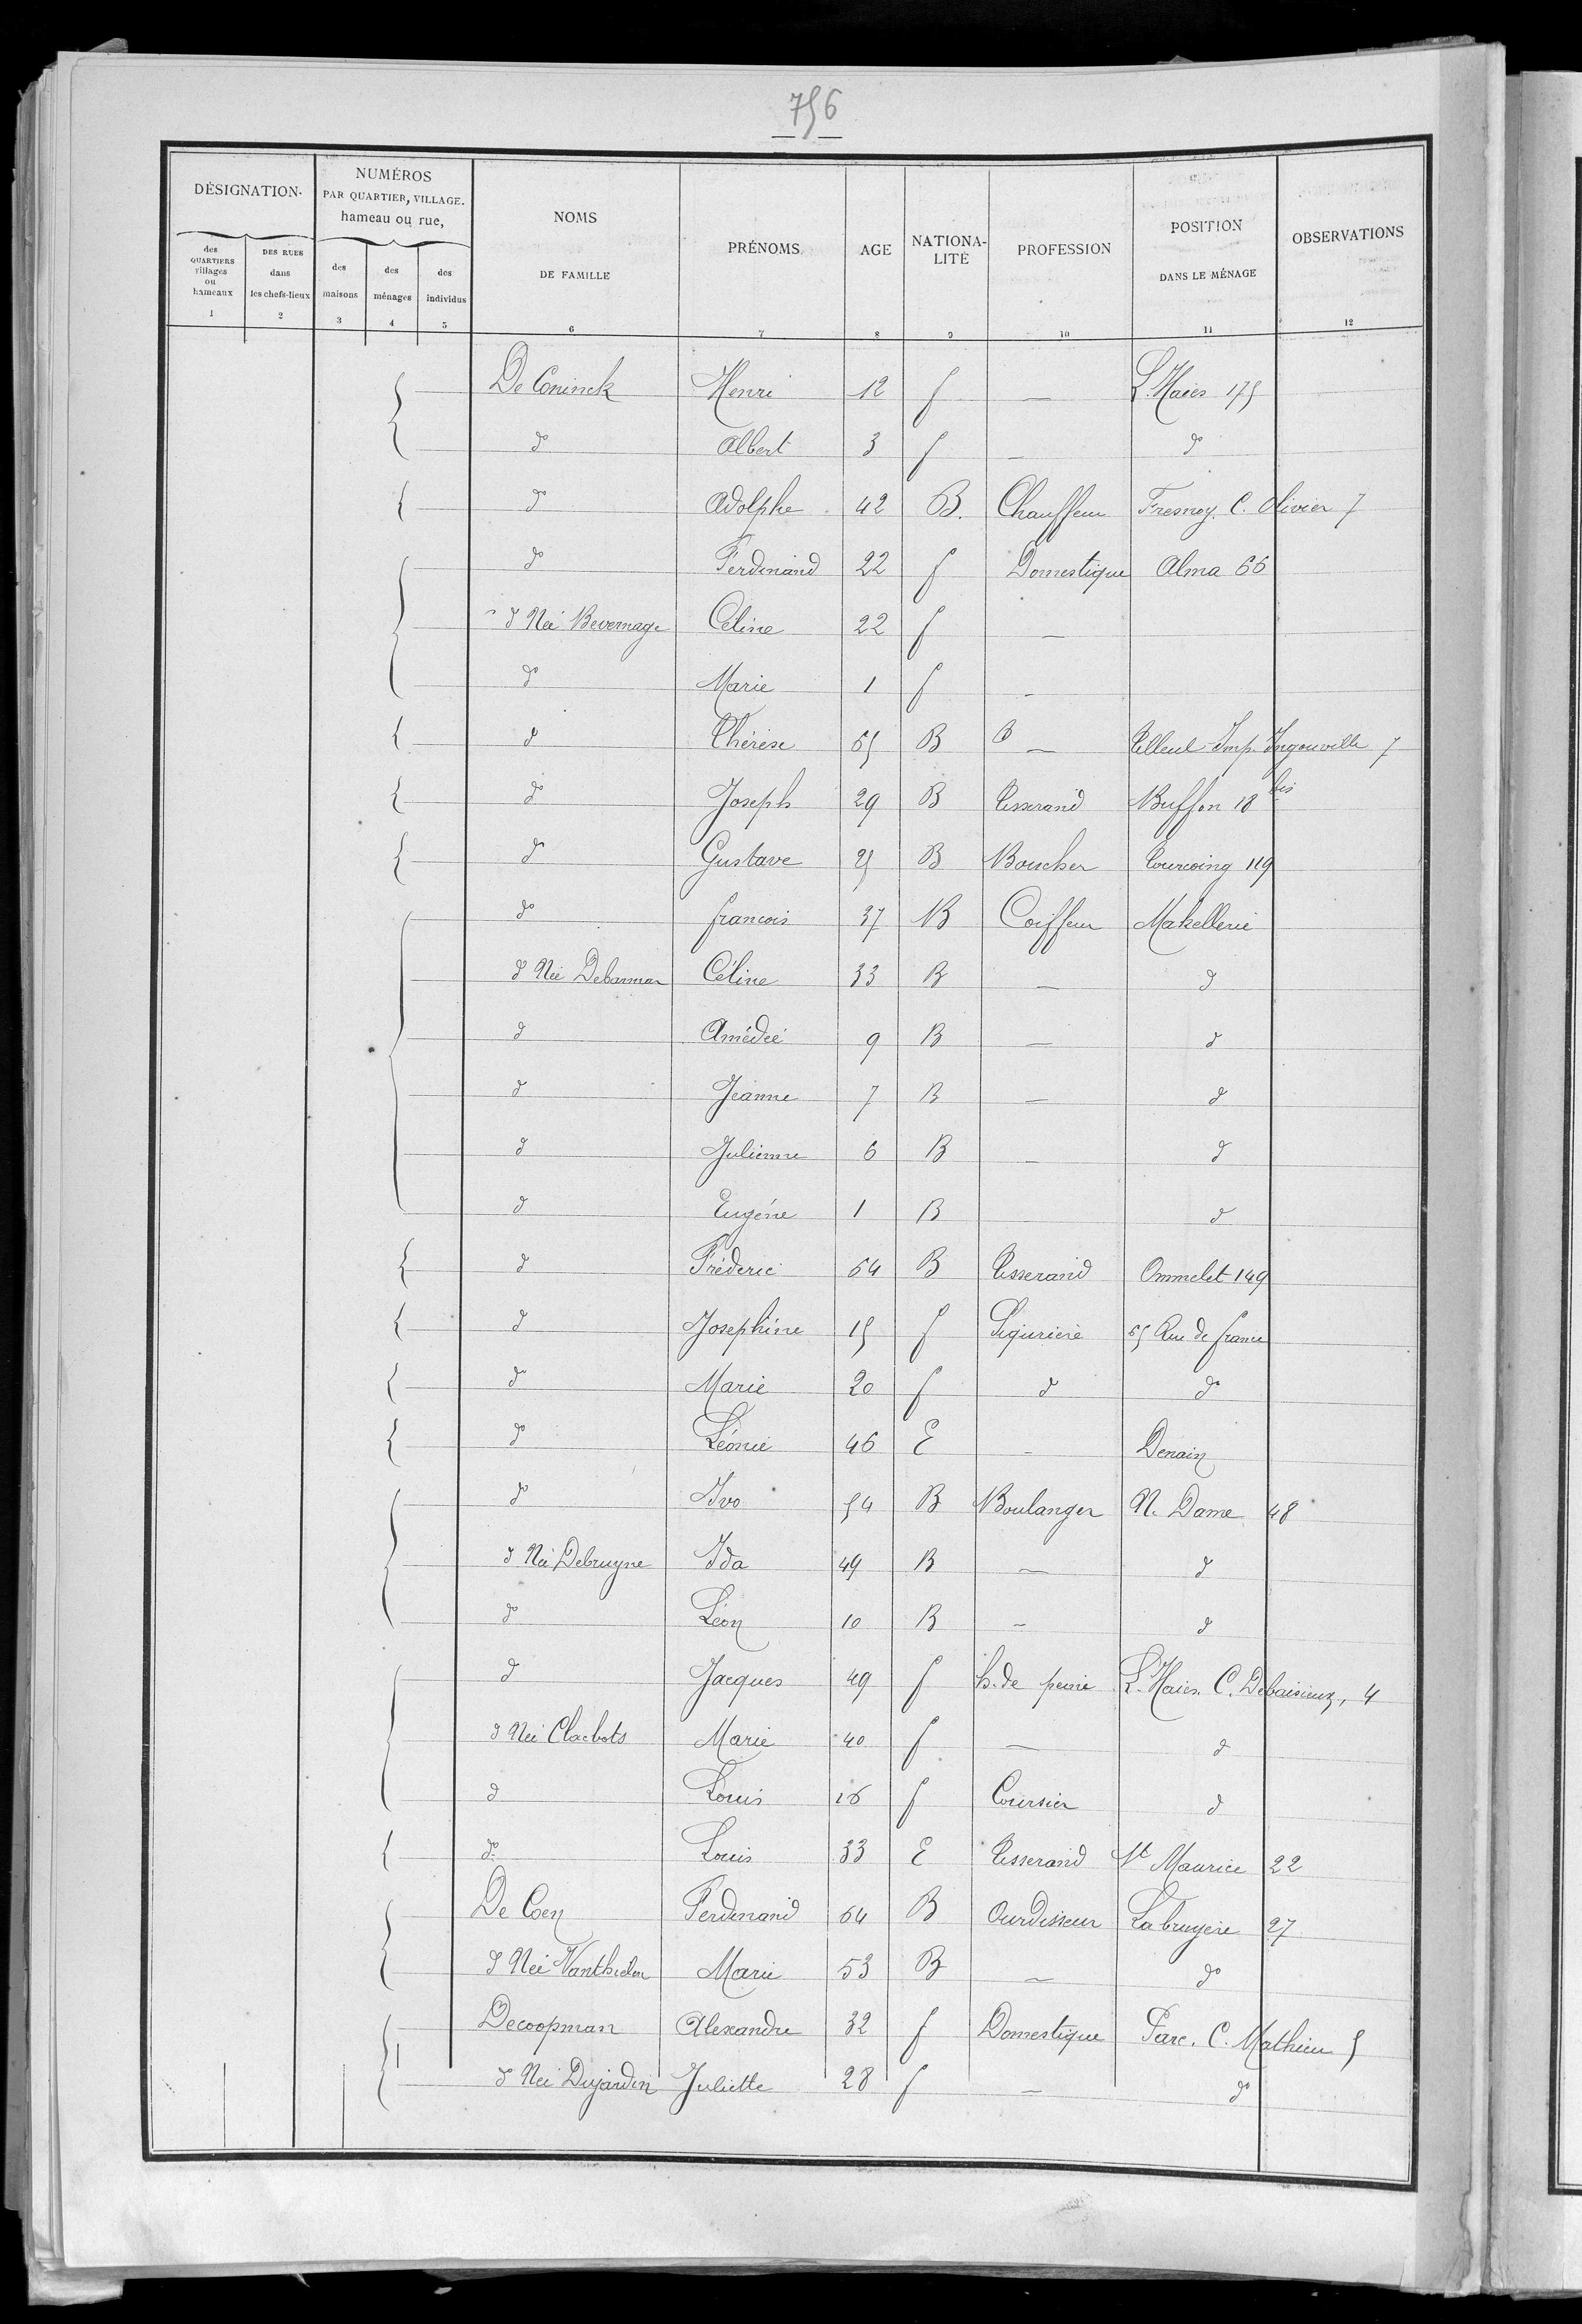 756
DÉSIGNATION
NUMÉROS
PAR QUARTIER, VILLAGE.
hameau ou rue,
NOMS
DE FAMILLE
PRÉNOMS
AGE
NATIONA-
LITÉ
PROFESSION
POSITION
DANS LE MÉNAGE
OBSERVATIONS
des
QUARTIERS
villages
ou
hameaux
DES RUES
dans
les chefs-lieux
des
maisons
des
ménages
des
individus
1 2 3 4 5 6 7 8 9 10 11 12
De Coninck Henri 12 f — L. Haies 175
do Albert 3 f — do
do Adolphe 42 B. Chauffeur Fresnoy. C. Olivier 7
do Ferdinand 22 f Domestique Alma 66
d Née Bevernage Céline 22 f —
do Marie 1 f -
d Thérèse 65 B — Tilleul Imp. Ingouville 7
do Joseph 29 B Tisserand Buffon 18 bis
do Gustave 25 B Boucher Tourcoing 119
do francois 37 B Coiffeur Makellerie
d Née Debarman Céline 33 B — d
d Amédée 9 B — d
d Jeanne 7 B — d
d Julienne 6 B — d
d Eugéne 1 B d
d Fréderic 64 B Tisserand Ommelet 149
d Josephine 15 f Piqurière 65 Rue de france
do Marie 20 f d do
do Léonie 46 E - Denain
do Ivo 54 B Boulanger N. Dame 48
d Née Debruyne Ida 49 B — d
do Léon 10 B - d
d Jacques 49 f h. de peine L. Haies. C. Debaisieux, 4
d Née Claebots Marie 40 f — d
d Louis 16 f Coursier d
do Louis 33 E Tisserand St Maurice 22
De Coen Ferdinand 64 B Ourdisseur Labruyère 27
d Née Marie 53 B — do
Decoopman Alexandre 32 f Domestique Parc. C. Mathieu 5
d Née Dujardin Juliette 28 f — do